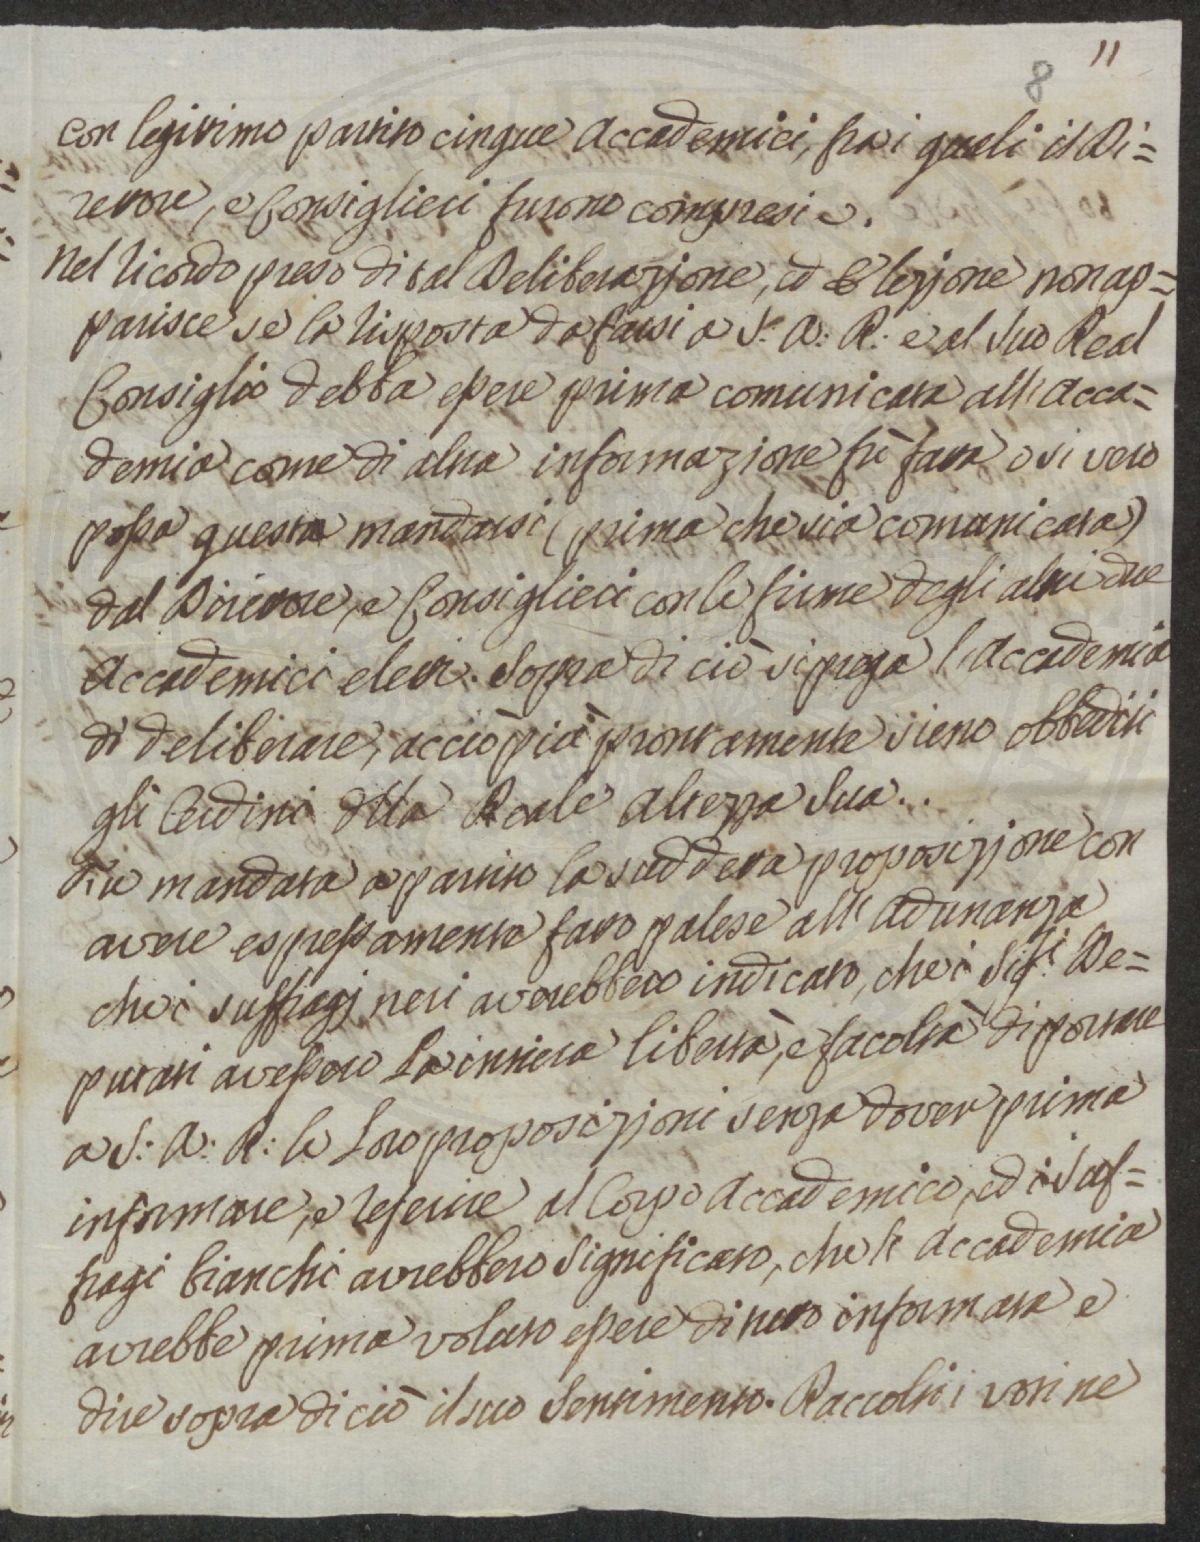 11
8
con legitimo partito cinque Accademici, fra i quali il Di=
rettore, e Consiglieri furono compresi.
Nel ricordo preso di tal Deliberazzione, ed Elezzione non ap=
parisce se la risposta da farsi a S: A: R: e al Suo Real
Consiglio debba essere prima comunicata all' Acca=
demia come di altra informazione fù fatta o si vero
possa questa mandarsi (prima che sia comunicata)
dal Direttore, e Consiglieri con le firme degli altri due
Accademici eletti. Sopra di ciò si prega l'Accademia
di deliberare, acciò più prontamente sieno obbediti
gli Ordini della Reale Altezza Sua..
Fù mandata a partito la suddetta proposizzione con
avere espressamente fatto palese all' Adunanza
che i suffragj neri averebbero indicato, che i Sigri De=
putati avessero la intiera libertà, e facoltà di portare
a S: A: R: le Loro proposizzioni senza dover prima
informare, e referire al Corpo Accademico, ed i Suf=
fragi bianchi avrebbero significato, che l' Accademia
avrebbe prima voluto essere di tutto informata e
dire sopra di ciò il suo Sentimento. Raccolti i voti ne